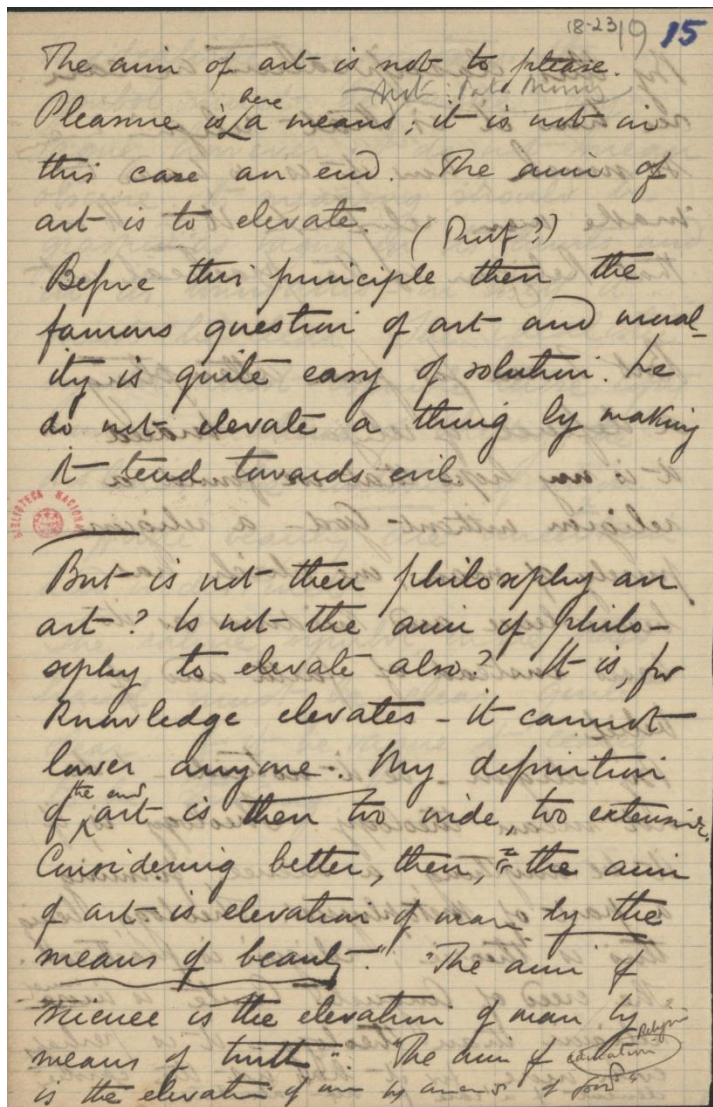 18-23 19 15
The aim of art is not to please.
Pleasure is here a means; it is not in
this case an end. The aim of
art is to elevate. (Proof?)
Before this principle then the
famous question of art and moral-
ity is quite easy of solution. We
do not elevate a thing by making
it tend towards evil.
BIBLIOTECA NACIONAL
But is not then philosophy an
art? Is not the aim of philo-
sophy to elevate also? It is, for
knowledge elevates - it cannot
lower anyone. My definition
of the end art is then too wide, too extensive.
Considering better, then, "the aim
of art is elevation of man by the
means of beauty." "The aim of
science is the elevation of man by
means of truth". "The aim of Religion
is the elevation of man by means of good"